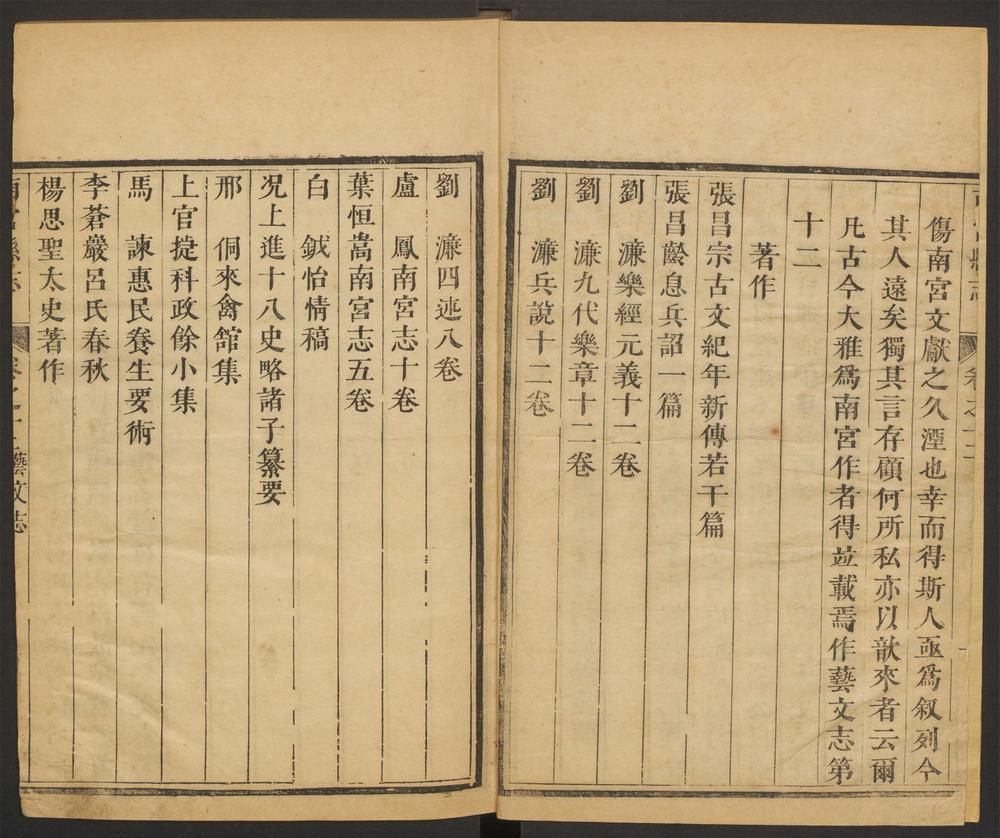 傷南宮文獻之久湮也幸而得斯人亟爲叙列今
其人遠矣獨其言存顧何所私亦以歆來者云爾
凡古今大雅爲南宮作者得並載焉作藝文志第
十二
著作
張昌宗古文紀年新傳若干篇
張昌齡息兵詔一篇
劉 濂樂經元義十二卷
劉 濂九代樂章十二卷
劉 濂兵說十二卷
劉 濂四述八卷
盧 鳳南宮志十卷
葉恒嵩南宮志五卷
白 鉞怡情稿
况上進十八史略諸子纂要
邢 侗來禽舘集
上官捷科政餘小集
馬 諫惠民養生要術
李蒼巖呂氏春秋
楊思聖太史著作
南宮縣志 卷之十二藝文志